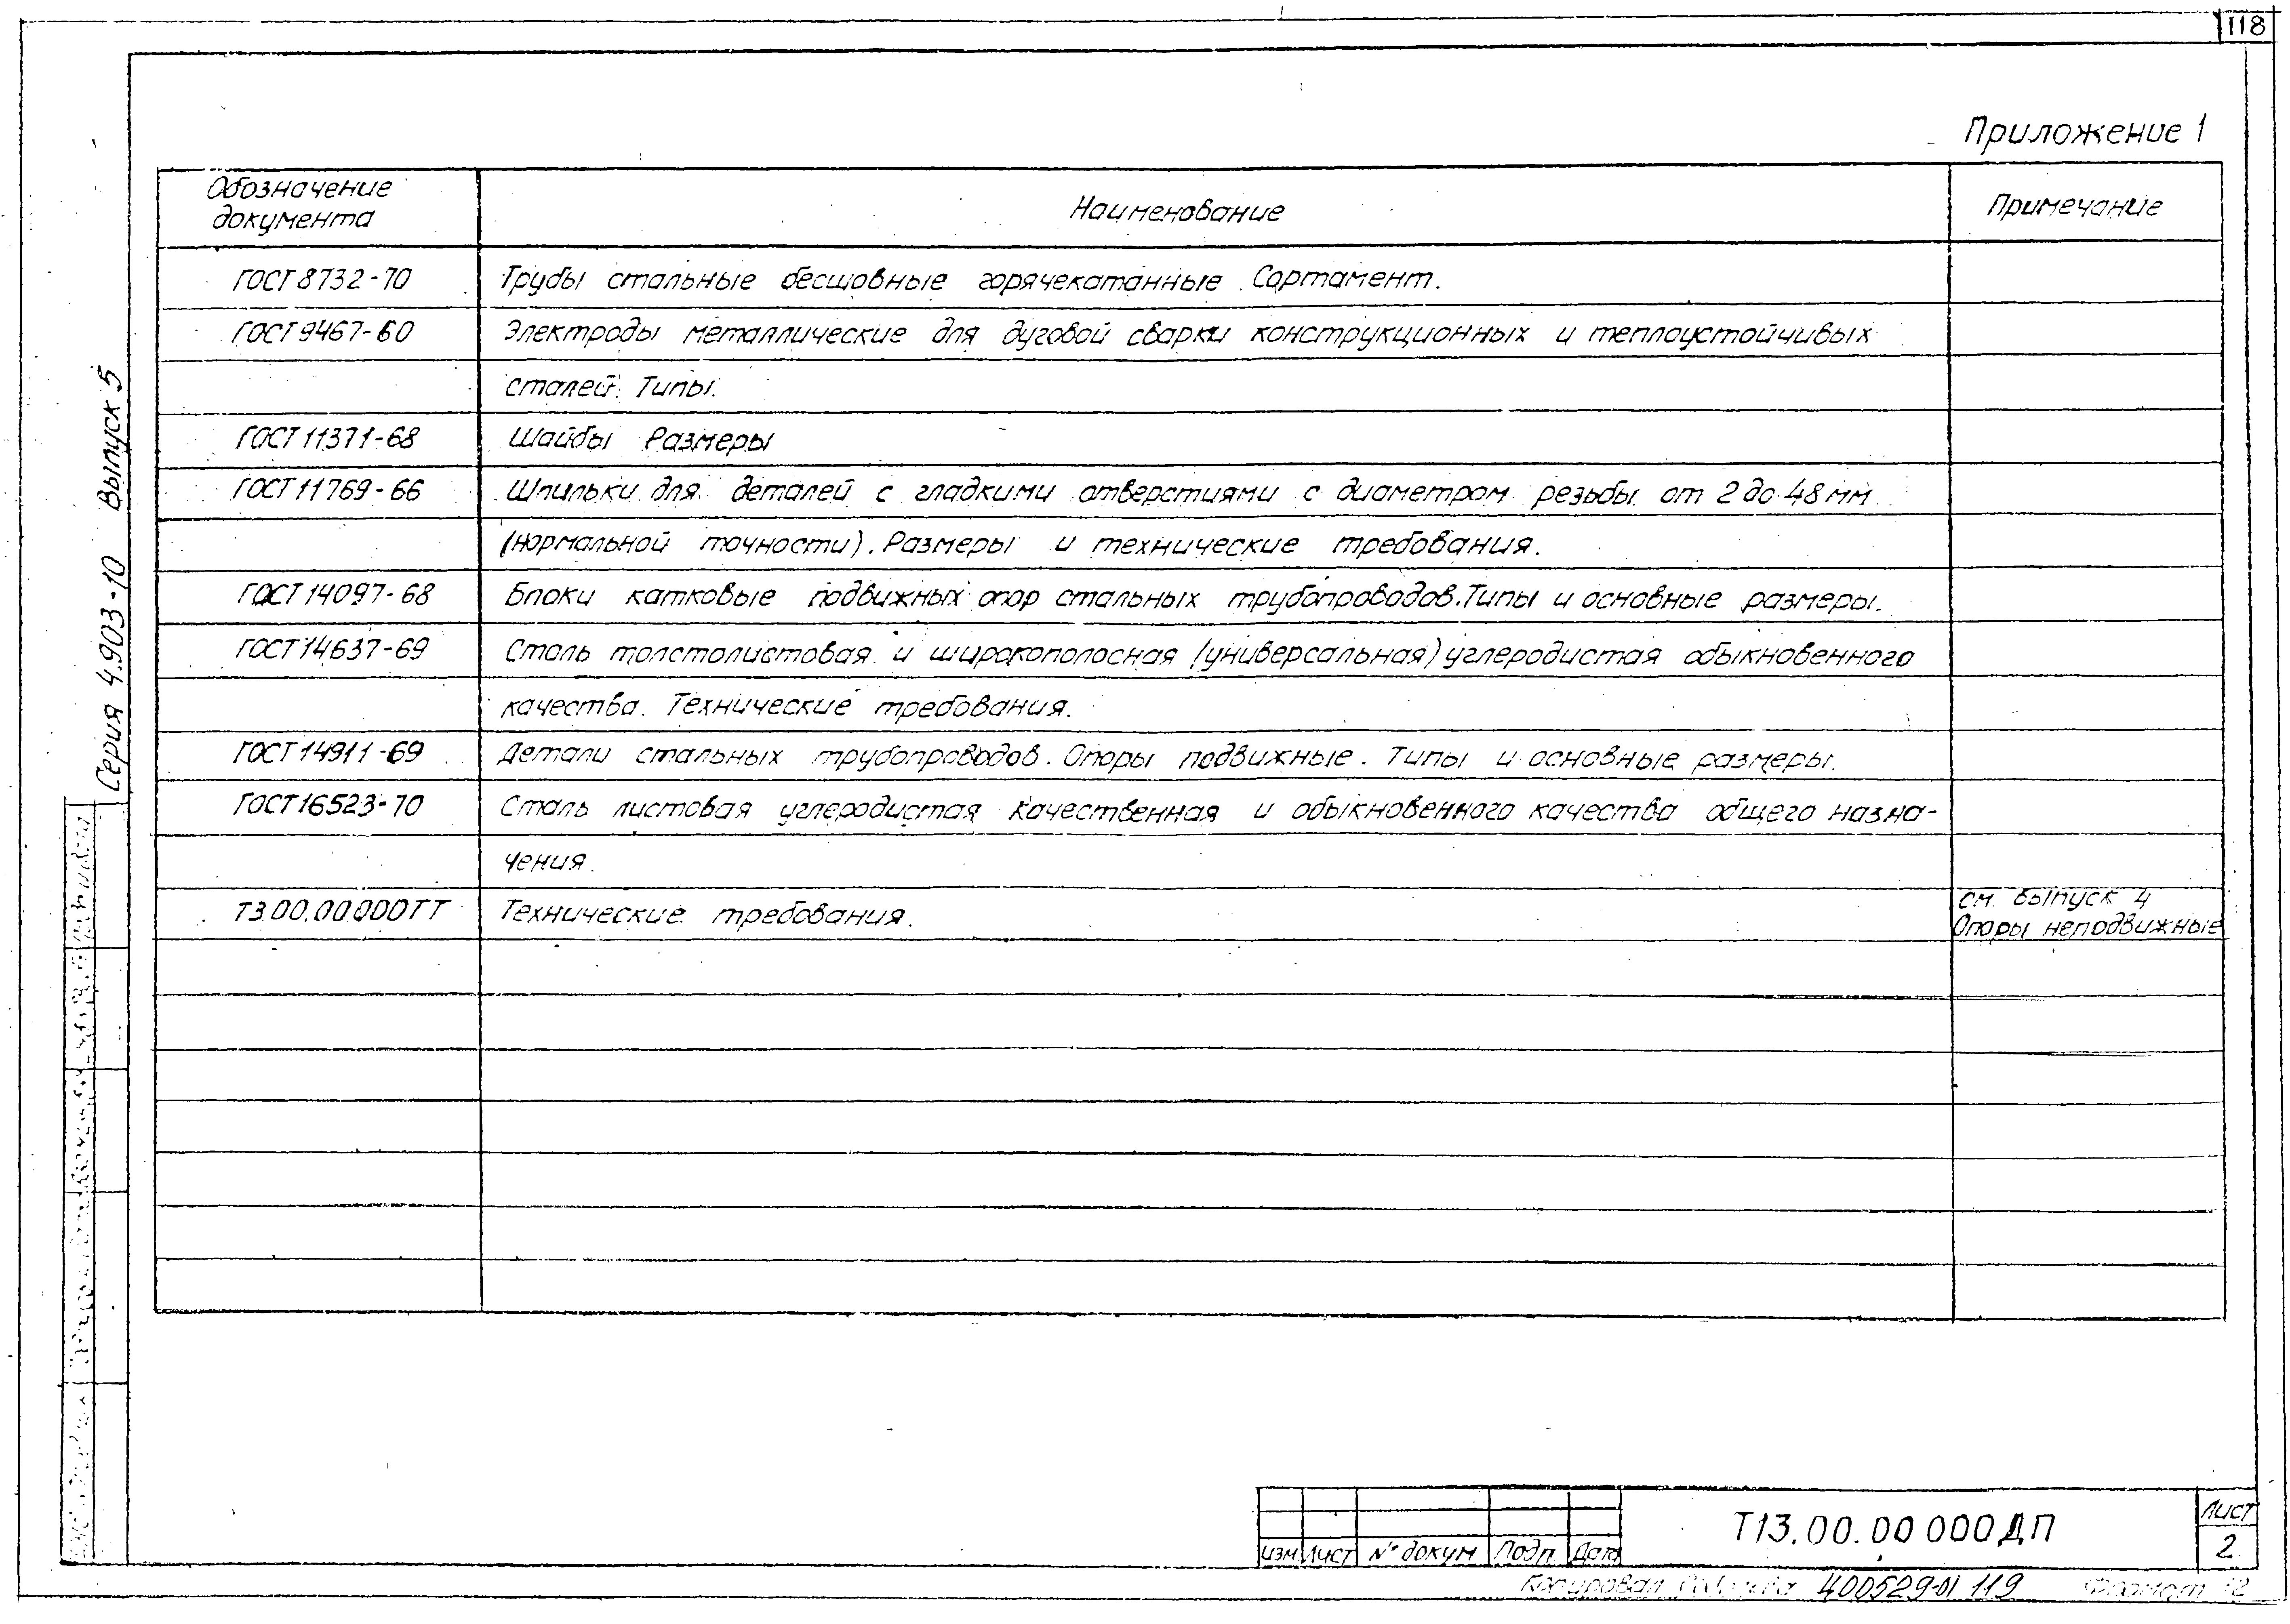 118
Приложение 1
Обозначение документа
Наименование
Примечание
ГОСТ 8732-70 Трубы стальные бесшовные горячекатанные. Сортамент.
ГОСТ 9467-60 Электроды металлические для дуговой сварки конструкционных и теплоустойчивых
сталей. Типы.
ГОСТ 11371-68 Шайбы Размеры
ГОСТ 11769-66 Шпильки для деталей с гладкими отверстиями с диаметром резьбы от 2 до 48 мм
(нормальной точности). Размеры и технические требования.
ГОСТ 14097-68 Блоки катковые подвижных опор стальных трубопроводов. Типы и основные размеры.
ГОСТ 14637-69 Сталь толстолистовая и широкополосная (универсальная) углеродистая обыкновенного
качества. Технические требования.
ГОСТ 14911-69 Детали стальных трубопроводов. Опоры подвижные. Типы и основные размеры.
ГОСТ 16523-70 Сталь листовая углеродистая качественная и обыкновенного качества общего назна-
чения.
Т3.00.00.000ТТ Технические требования. см. выпуск 4
Опоры неподвижные
Серия 4.903-10 Выпуск 5
Изм Лист № докум Подп. Дата
Т13.00.00 000 ДП
Лист
2
Копировал 400529-01 119 Формат 12